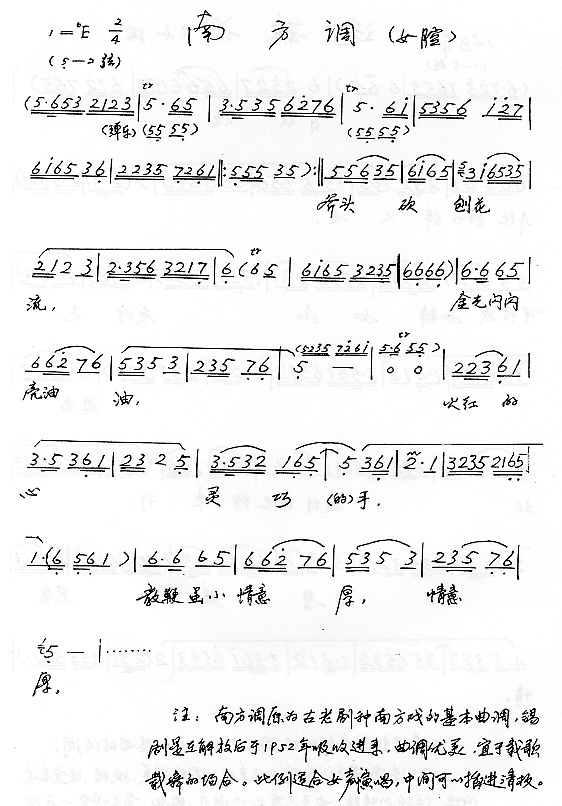 1=♭E 2/4 南方调(女腔)
(5—2弦)
(5·653 2123|5·65|3·535 6276|5·6i|5356 i27|
(弹乐)(55 55) (55 55)
6i65 36|2235 7261|:555 35):|55635|6i65|3i6535|
斧头 砍 刨花
2123|2·356 3217|6(65|6i65 3235|6666)|6·665|
流, 金光闪闪
(5235 726i|5·655)
662 76|5353|235 76|5 —|0 0|22361|
亮油 油, 火红 的
3·5 361|2325|3·532 165|5 361|2·1|3235 2165|
心 灵 巧 (的)手,
1·(6 561)|6·6 65|662 76|535 3|235 76|
教鞭虽小 情意 厚, 情意
5 —|········
厚。
注:南方调原为古老剧种南方戏的基本曲调,锡
剧是在解放后于1952年吸收进来,曲调优美,宜于载歌
载舞的场合。此例适合女声演唱,中间可以插进清板。